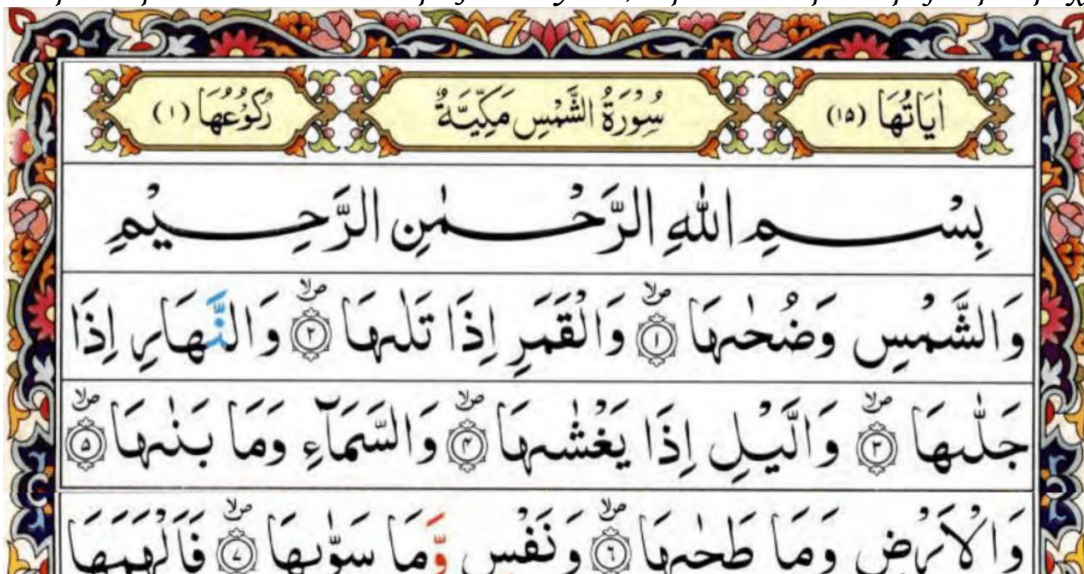 اٰيَاتُهَا (١٥) سُوْرَةُ الشَّمْسِ مَكِّيَّةٌ رُكُوْعُهَا (١)
بِسْمِ اللّٰهِ الرَّحْمٰنِ الرَّحِيْمِ
وَالشَّمْسِ وَضُحٰىهَا ۙ﴿١﴾ وَالْقَمَرِ اِذَا تَلٰىهَا ۙ﴿٢﴾ وَالنَّهَارِ اِذَا
جَلّٰىهَا ۙ﴿٣﴾ وَالَّيْلِ اِذَا يَغْشٰىهَا ۙ﴿۴﴾ وَالسَّمَآءِ وَمَا بَنٰىهَا ۙ﴿۵﴾
وَالْاَرْضِ وَمَا طَحٰىهَا ۙ﴿۶﴾ وَنَفْسٍ وَّمَا سَوّٰىهَا ۙ﴿۷﴾ فَاَلْهَمَهَا